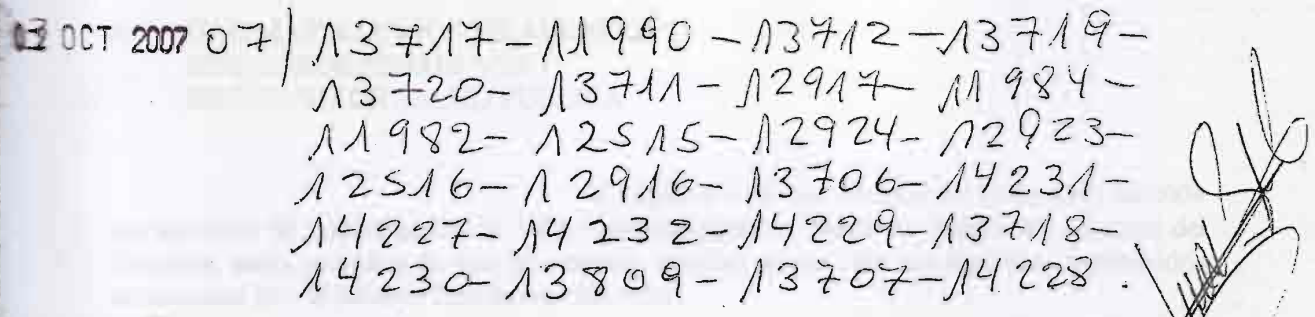 02 OCT 2007 07) 13717-11990-13712-13719-
13720-13711-12917-11984-
11982-12515-12924-12923-
12516-12916-13706-14231-
14227-14232-14229-13718-
14230-13809-13707-14228.